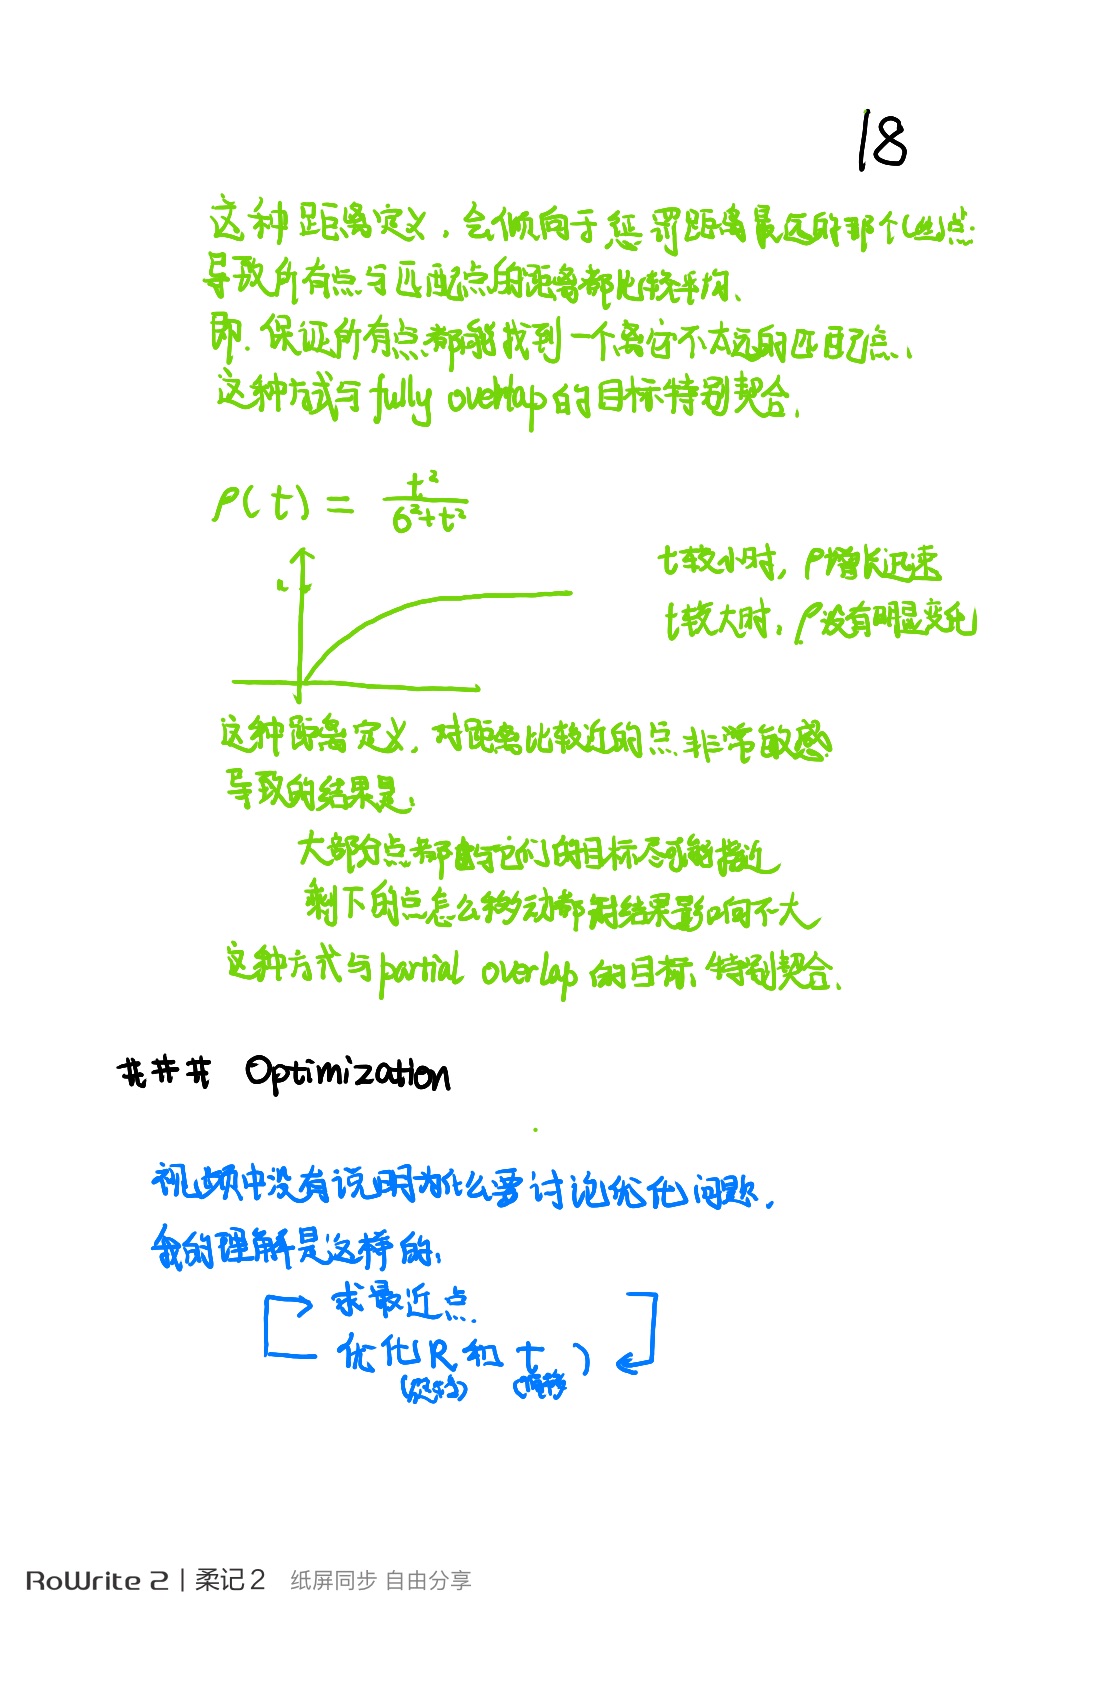 18
这种距离定义，会倾向于惩罚距离最远的那个(些)点.
导致所有点与匹配点的距离都比较平均、
即.保证所有点都能找到一个离它不太远的匹配点、
这种方式与fully overlap的目标特别契合、
ρ(t) = t²/(σ²+t²)
t较小时，ρ增长迅速
t较大时，ρ没有明显变化
这种距离定义，对距离比较近的点非常敏感
导致的结果是、
大部分点都与它们的目标尽可能接近
剩下的点怎么移动都对结果影响不大
这种方式与partial overlap的目标、特别契合、
### Optimization
视频中没有说明为什么要讨论优化问题、
我的理解是这样的、
求最近点.
优化(R和t)
(旋转) (偏移
RoWrite 2 | 柔记2 纸屏同步 自由分享